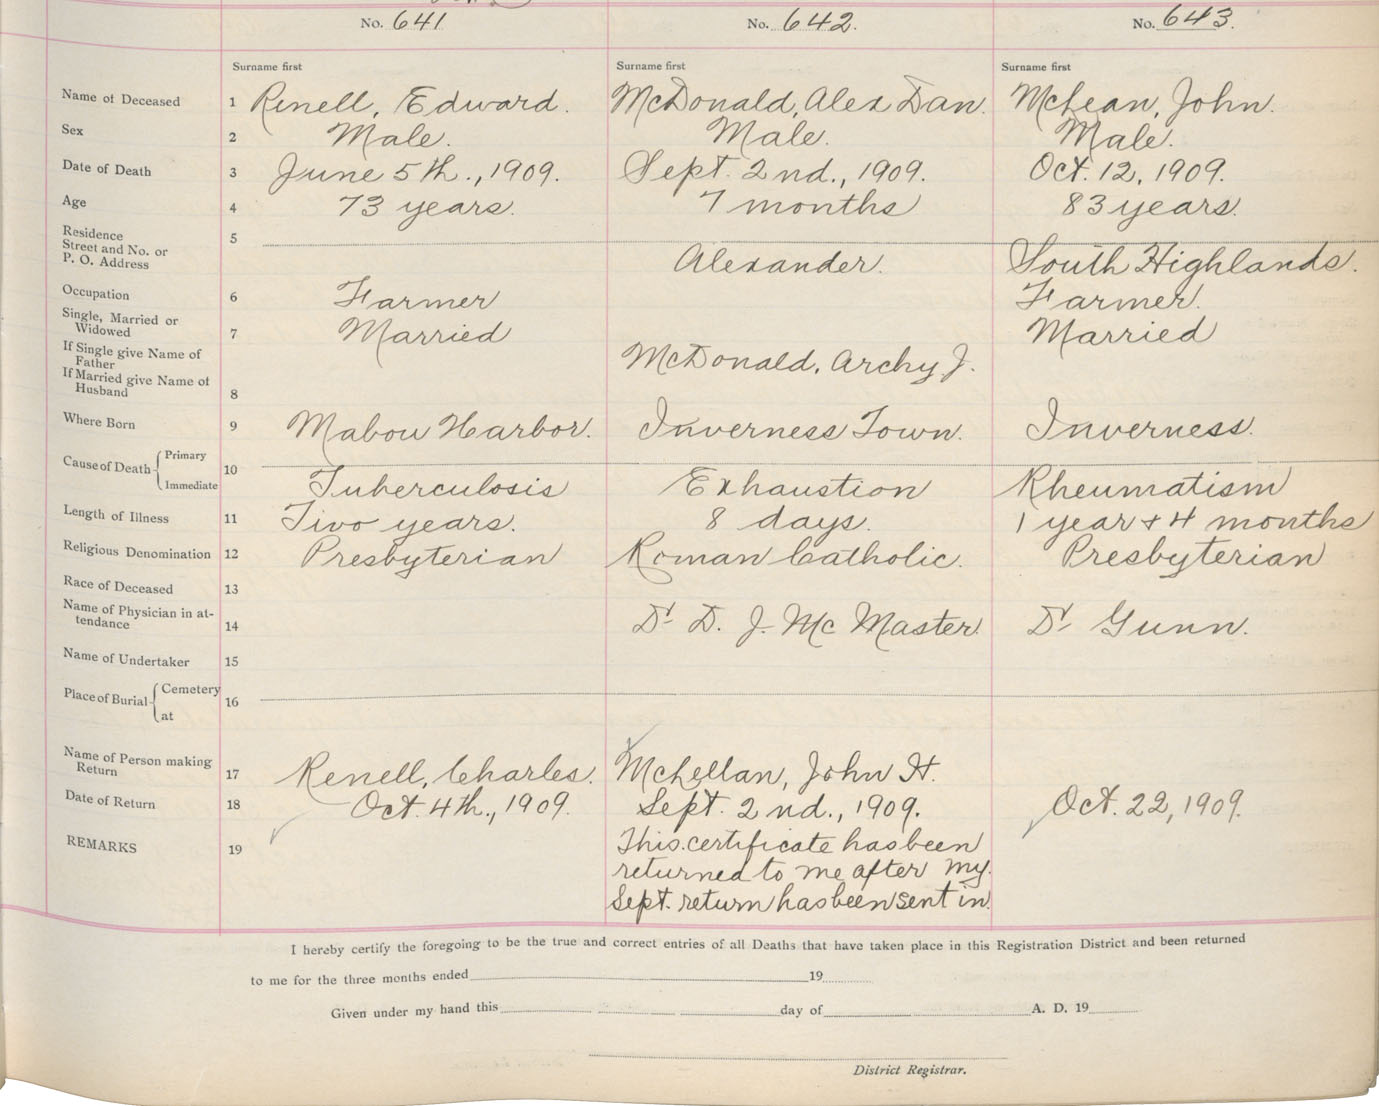 No. 641 No. 642. No. 643.
Surname first Surname first Surname first
Name of Deceased 1 Renell, Edward. McDonald, Alex Dan. McLean, John.
Sex 2 Male. Male. Male.
Date of Death 3 June 5th., 1909. Sept. 2nd., 1909. Oct. 12, 1909.
Age 4 73 years. 7 months 83 years.
Residence 5
Street and No. or
P. O. Address Alexander. South Highlands.
Occupation 6 Farmer Farmer.
Single, Married or
Widowed 7 Married Married
If Single give Name of
Father McDonald, Archy J.
If Married give Name of
Husband 8
Where Born 9 Mabou Harbor. Inverness Town. Inverness.
Cause of Death Primary 10
Immediate Tuberculosis Exhaustion Rheumatism
Length of Illness 11 Two years. 8 days. 1 year & 4 months
Religious Denomination 12 Presbyterian Roman Catholic. Presbyterian
Race of Deceased 13
Name of Physician in at-
tendance 14 Dr D. J. McMaster. Dr Gunn.
Name of Undertaker 15
Place of Burial Cemetery 16
at
Name of Person making
Return 17 Renell, Charles. McLellan, John H.
Date of Return 18 Oct. 4th., 1909. Sept. 2nd., 1909. Oct. 22, 1909.
REMARKS 19 This certificate has been
returned to me after my
Sept. return has been sent in.
I hereby certify the foregoing to be the true and correct entries of all Deaths that have taken place in this Registration District and been returned
to me for the three months ended 19
Given under my hand this day of A. D. 19
District Registrar.